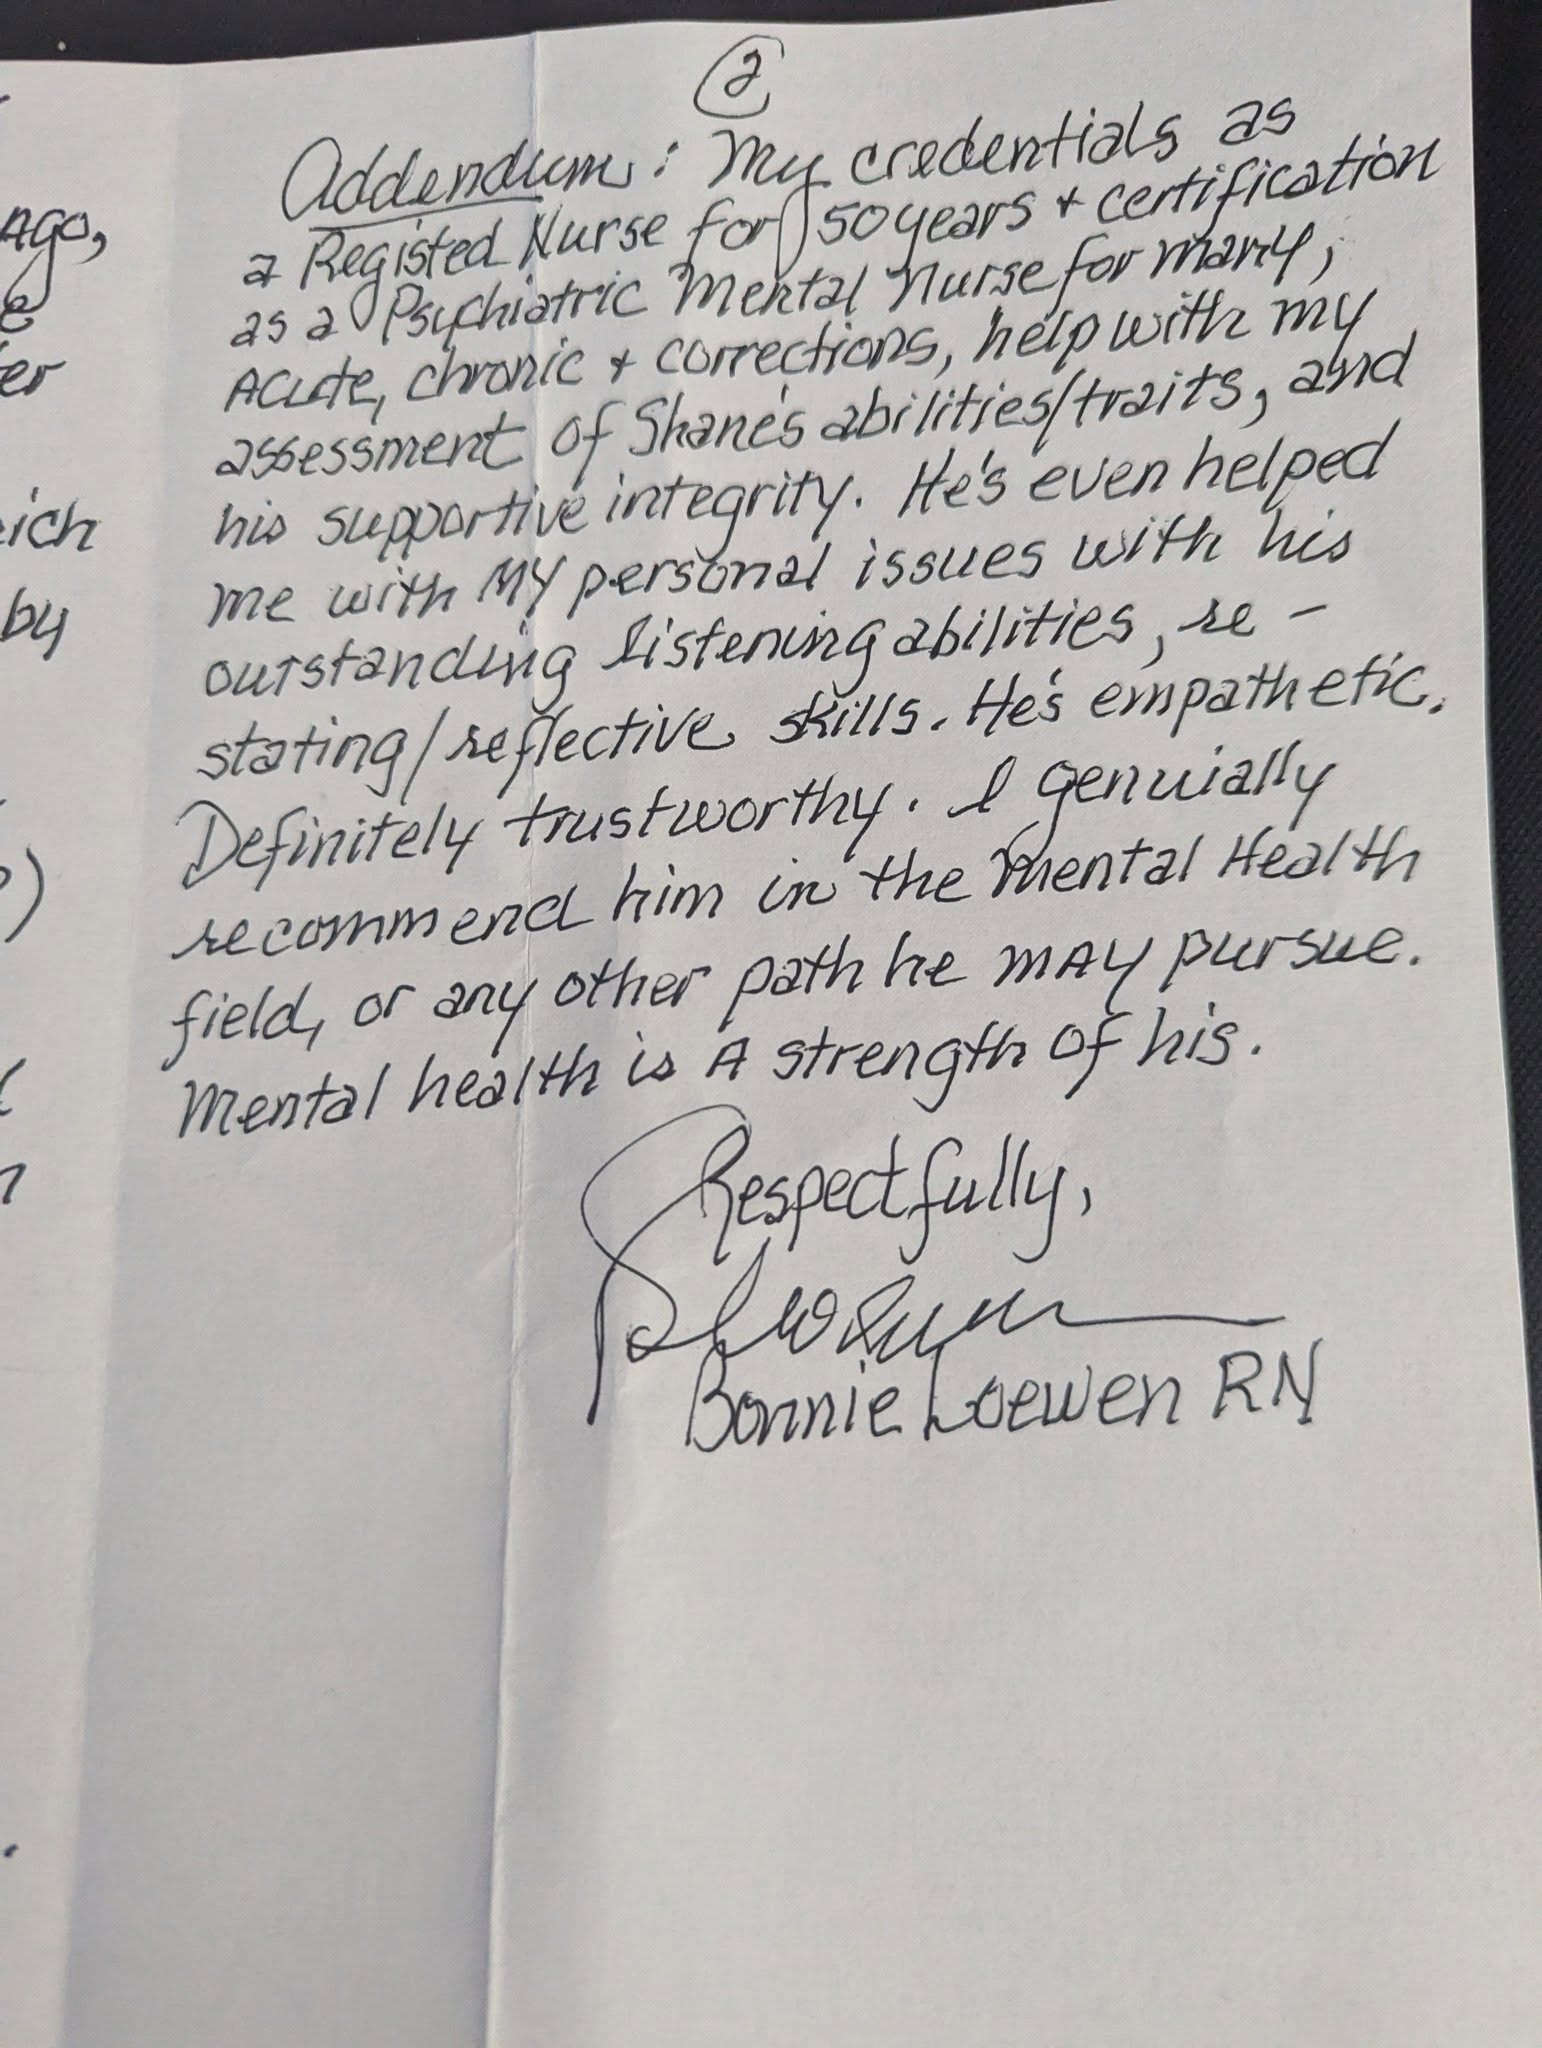 ago,
e
er
ich
by
2
Addendum: My credentials as
a Registed Nurse for 50 years + certification
as a Psychiatric Mental Nurse for many,
Acute, chronic + corrections, help with my
assessment of Shane's abilities/traits, and
his supportive integrity. He's even helped
me with MY personal issues with his
outstanding listening abilities, re-
stating/reflective skills. He's empathetic.
Definitely trustworthy. I genuially
recommend him in the Mental Health
field, or any other path he MAY pursue.
Mental health is A strength of his.
Respectfully,
Bonnie Loewen RN